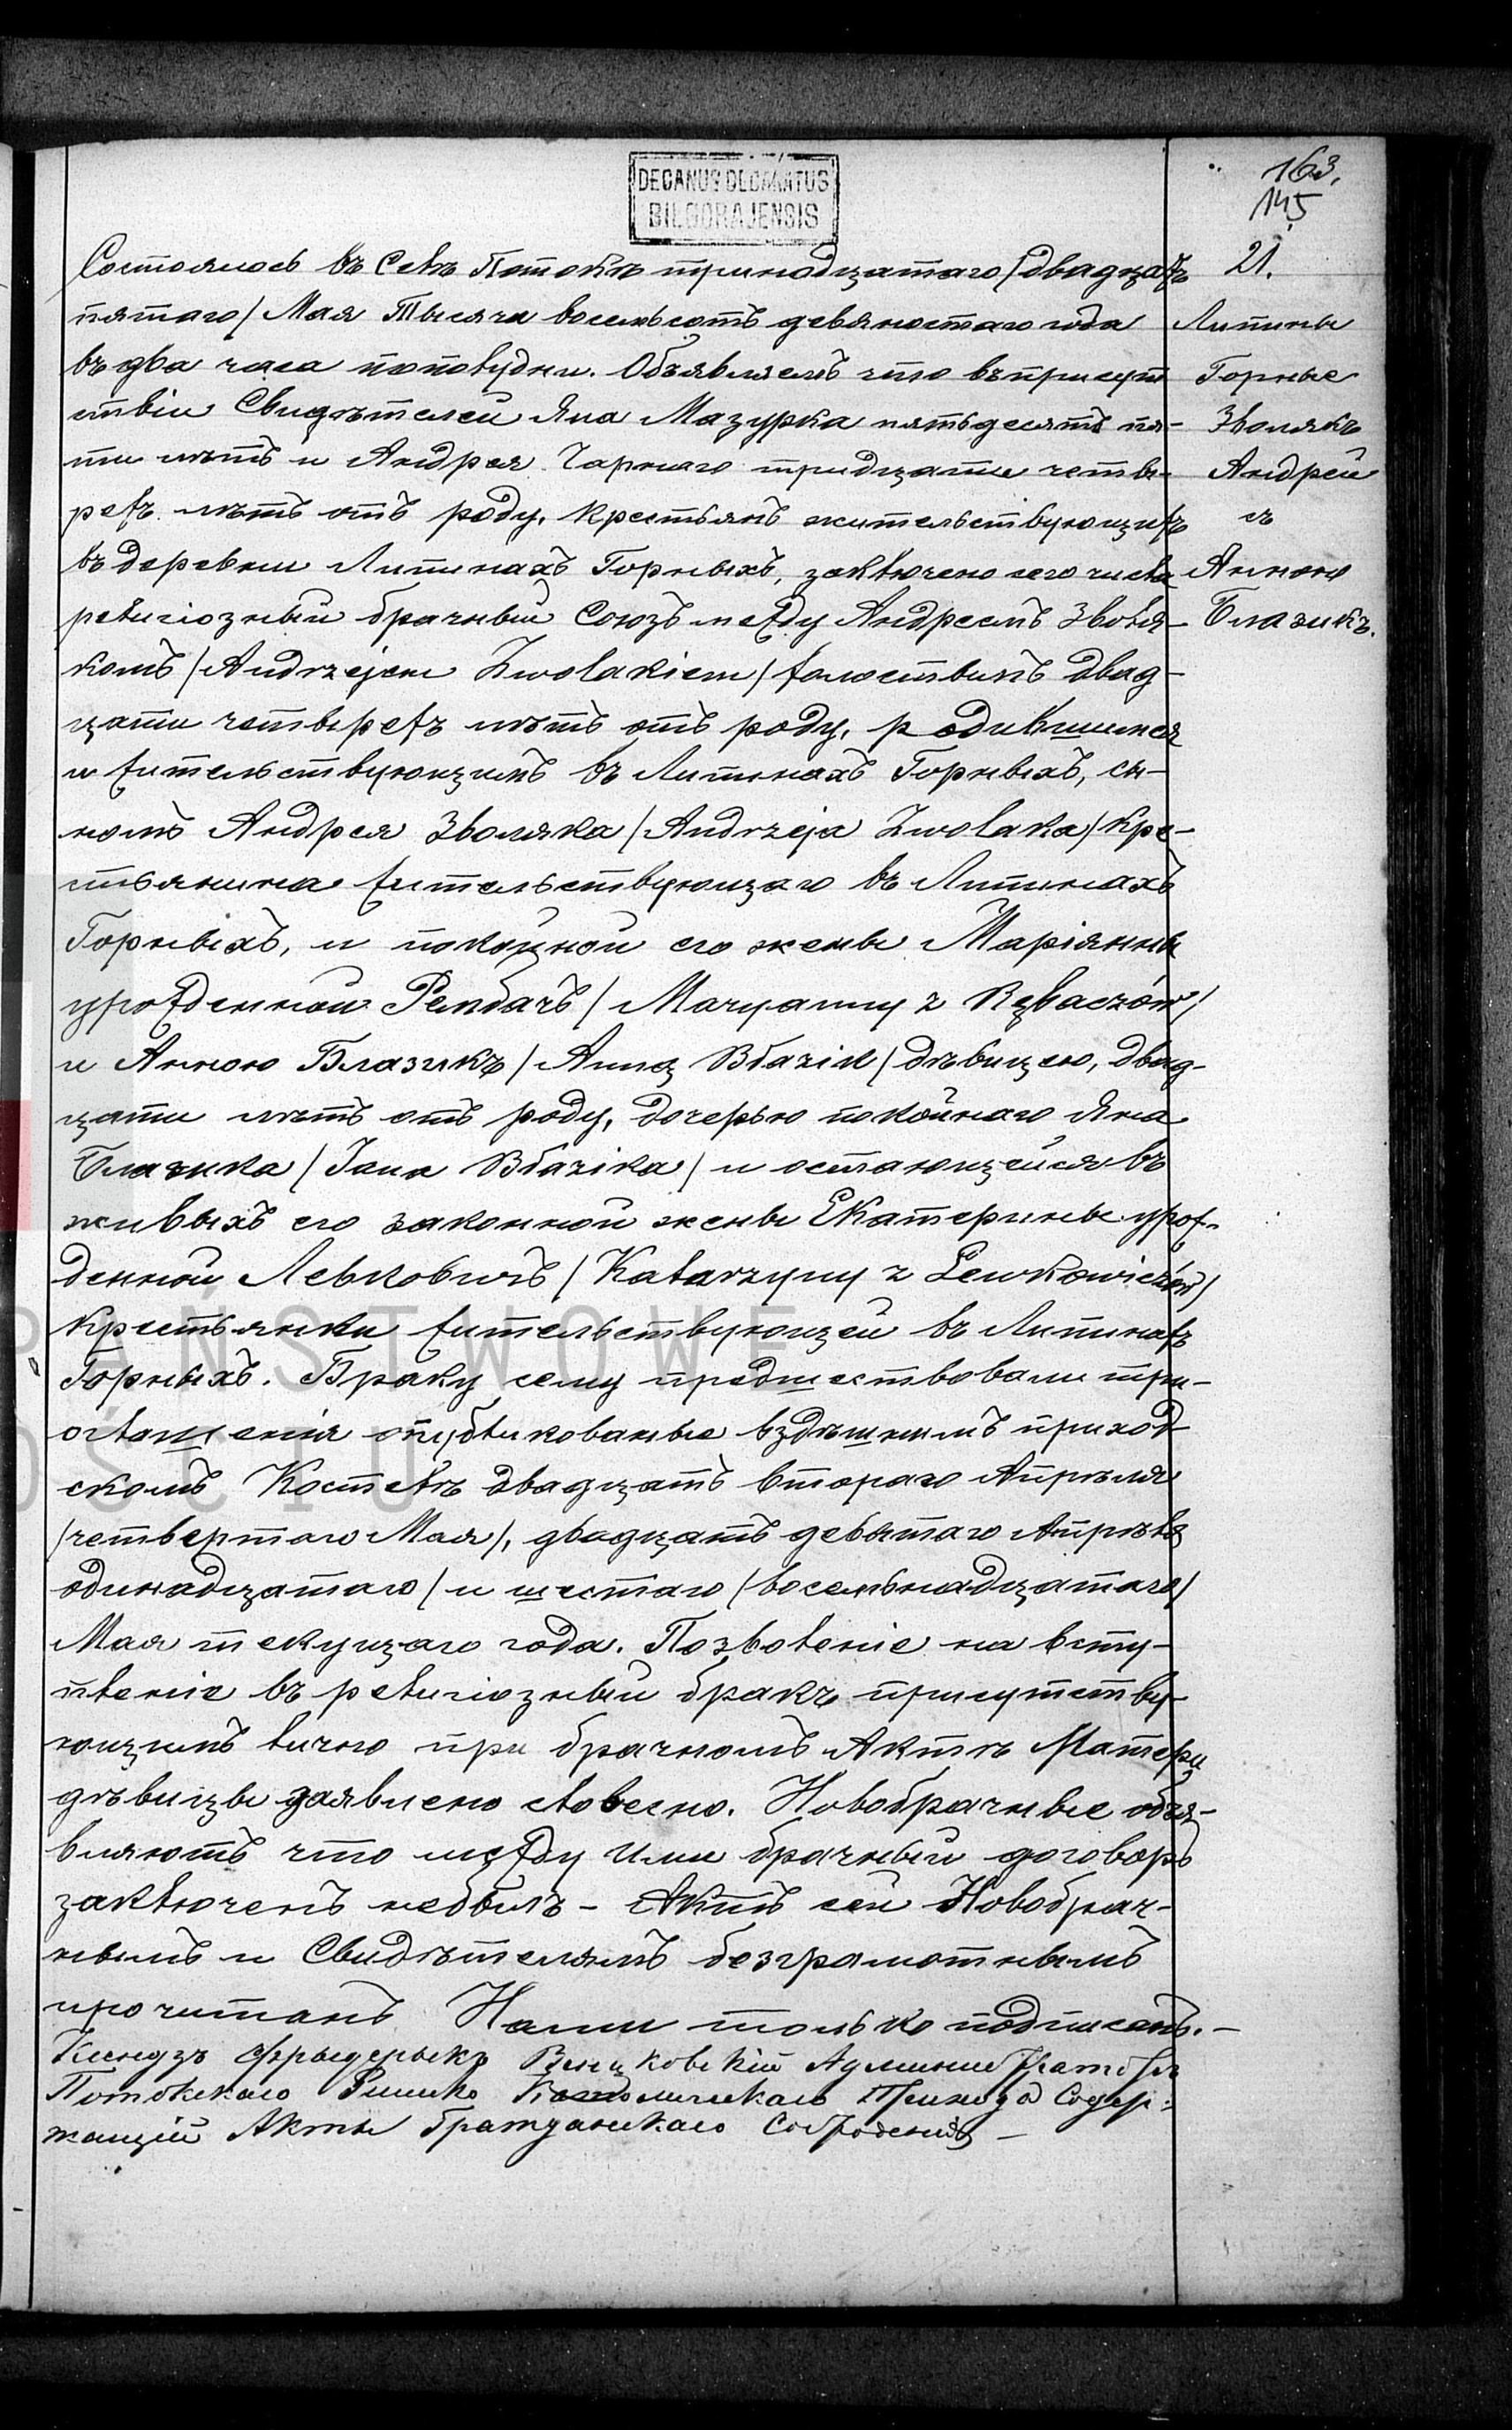 DECANUS DECANATUS
BILGORAJENSIS
163.
145
21.
Липины
Горные
Зволякъ
Андрей
съ
Анною
Блазикъ.
Состоялось въ Селѣ Потокѣ тринадцатаго /двадцать
пятаго/ Мая Тысяча восемьсотъ девяностаго года
въ два часа пополудни. Объявляемъ что въ присут
ствіи Свидѣтелей Яна Мазурка пятьдесятъ пя-
ти лѣтъ и Андрея Чарнаго тридцати четы-
рехъ лѣтъ отъ роду, крестьянъ жительствующихъ
въ деревни Липинахъ Горныхъ, заключено сего числа
религіозный брачный Союзъ между Андреемъ Зволя-
комъ /Andrzejem Zwolakiem/ холостымъ двад-
цати четырехъ лѣтъ отъ роду, родившимся
и жительствующимъ въ Липинахъ Горныхъ, сы-
номъ Андрея Зволяка /Andrzeja Zwolaka/ кре-
стьянина жительствующаго въ Липинахъ
Горныхъ, и покойной его жены Маріянны
урожденной Рембачъ /Maryanny z Rębaczów/
и Анною Блазикъ /Anną Błazik/ дѣвицею, двад-
цати лѣтъ отъ роду, дочерью покойнаго Яна
Блазика /Jana Błazika/ и остающейся въ
живыхъ его законной жены Екатерины урож-
денной Левковичъ /Katarzyny z Lewkowiczów/
крестьянки жительствующей въ Липинахъ
Горныхъ. Браку сему предшествовали три
оглашенія опубликованые въздѣшнимъ приход
скомъ Костелѣ двадцать втораго Апрѣля
/четвертаго Мая/, двадцать девятаго Апрѣля
одинадцатаго/ и шестаго /восемьнадцатаго/
Мая текущаго года. Позволеніе на всту-
пленіе въ религіозный бракъ присутству-
ющимъ лично при брачномъ Актѣ Матери
дѣвицы заявлено словесно. Новобрачные объя-
вляютъ что между ими брачный договоръ
заключенъ небылъ - Актъ сей Новобрач-
нымъ и Свидѣтелямъ безграмотнымъ
прочитанъ Нами только подписанъ. -
Ксендзъ Фрыдерыкъ Администраторъ
Потокскаго Римско Католическаго Прихода Содер-
жащій Акты Гражданскаго Состоянія -
PAŃSTWOWE